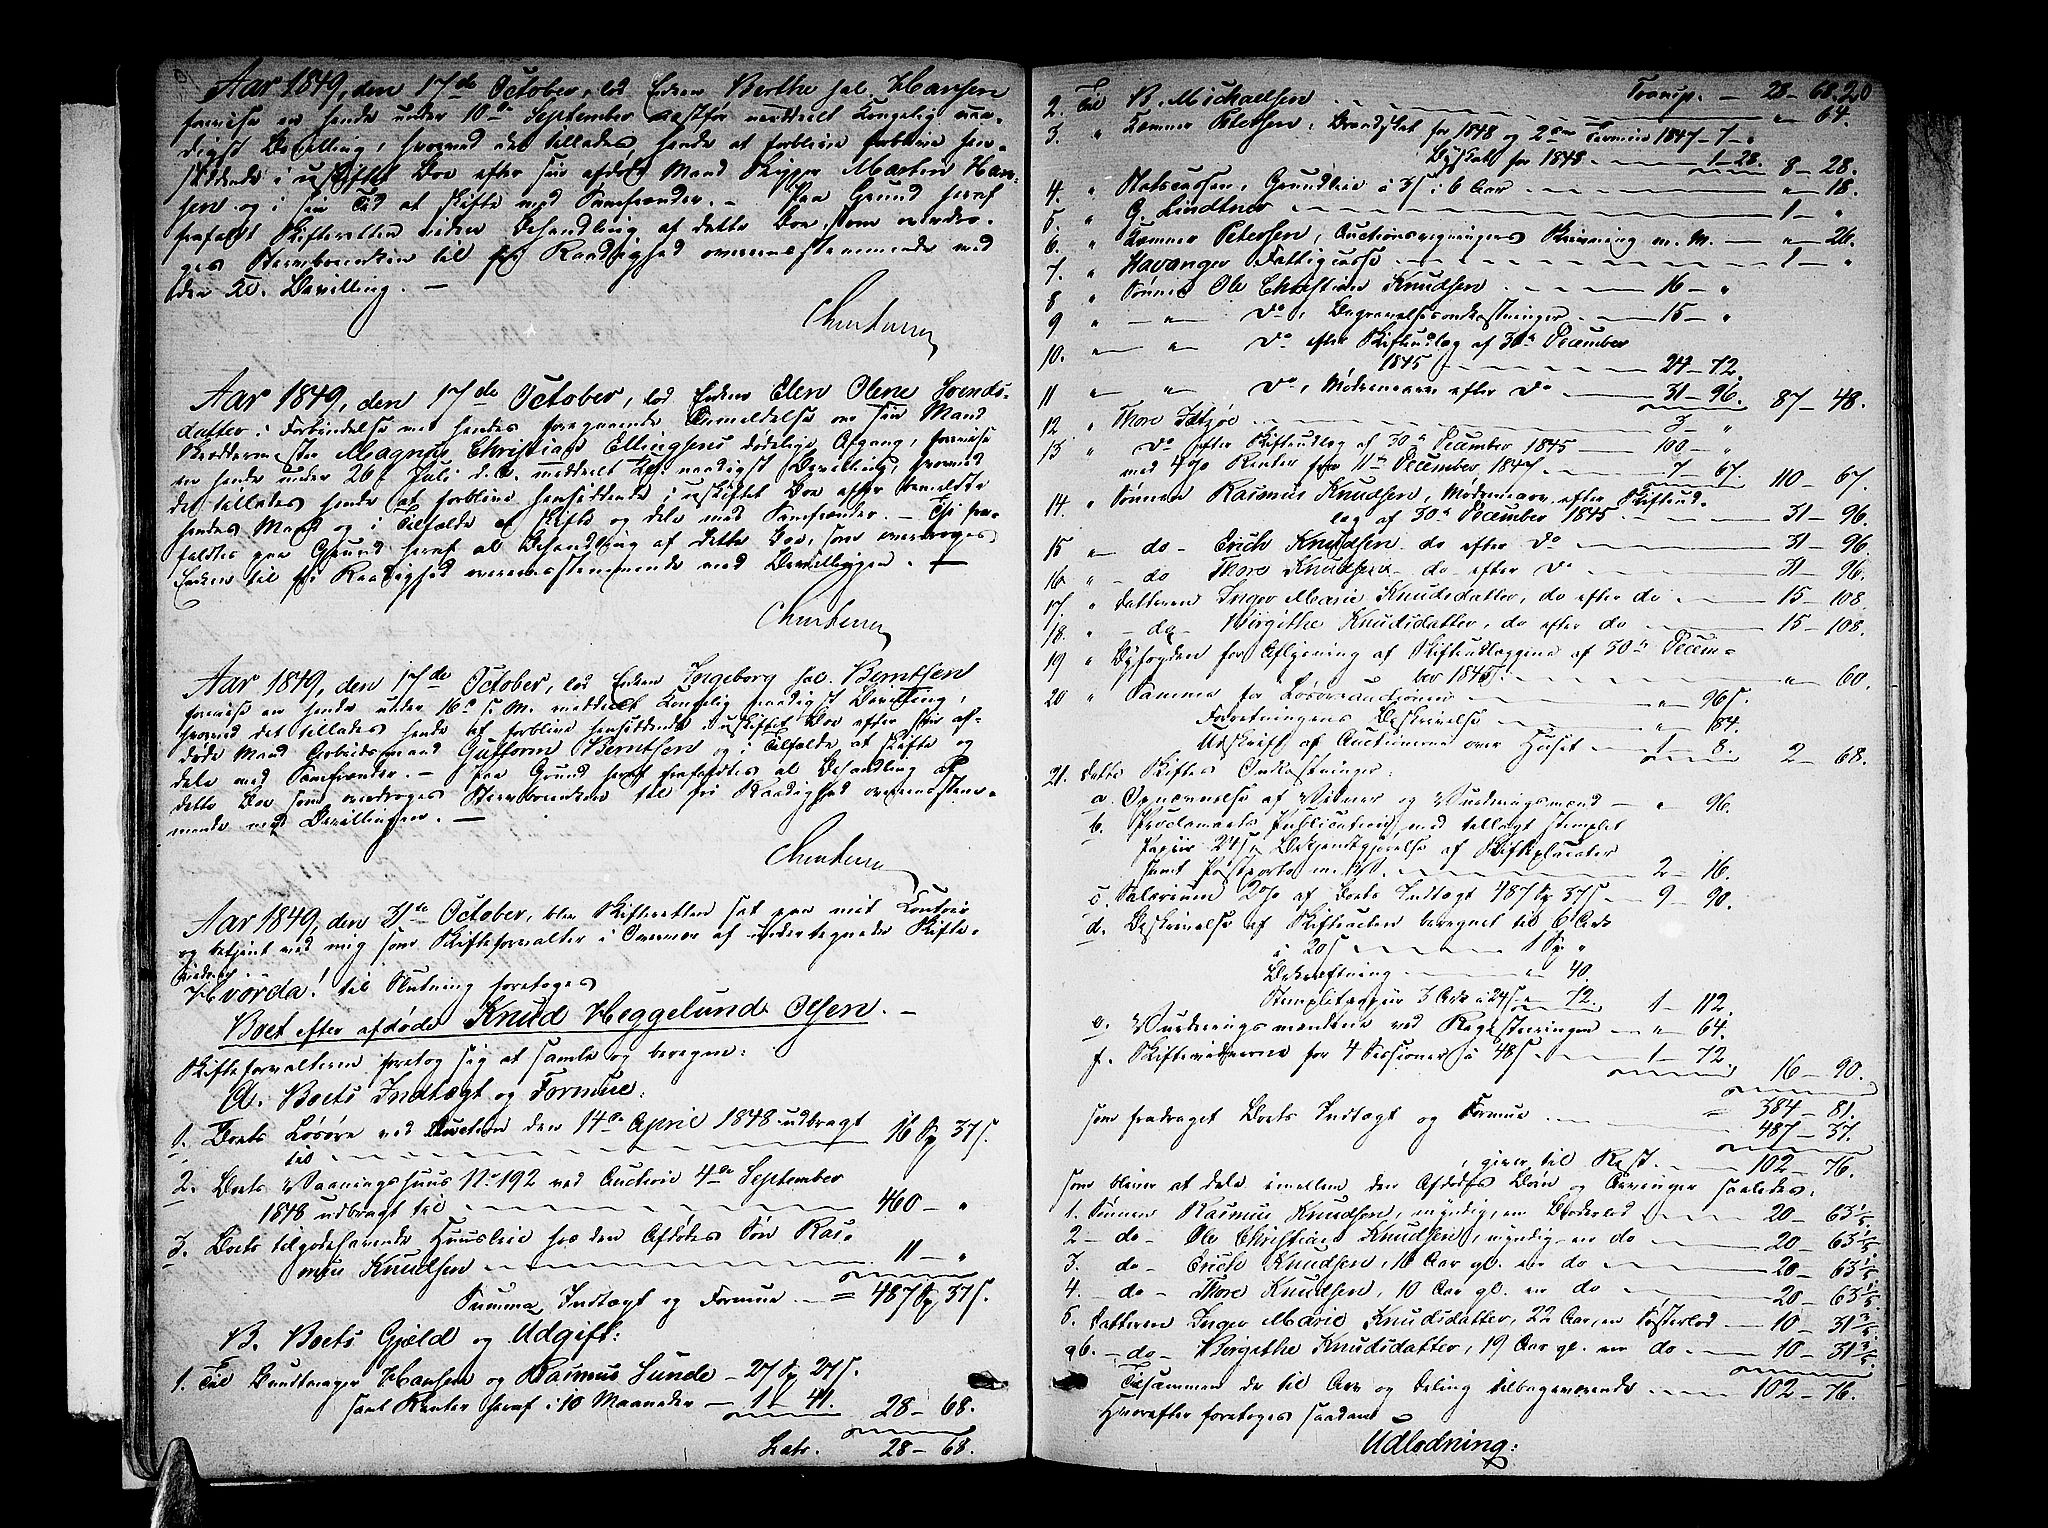 Aar 1849, den 17de October, lod Enken Berthe sal. Hansen
fremvise en hende under 10de September næstfør meddeelt Kongelig naa-
digst Bevilling, hvorved det tillades hende at forblive forblive hen-
siddende i uskiftet Boe efter sin afdøde Mand Skipper Morten Han-
sen og i sin Tid at skifte med Samfrænder. – Paa Grund heraf
frafaldt Skifteretten videre Behandling af dette Boe, som overdra-
ges Stervboenken til fri Raadighed overeensstemmende med
den Kl. Bevilling. –
Aar 1849, den 17de October, lod Enken Elen Olene Svends-
datter i Forbindelse med hendes foregaaende Anmeldelse om sin Mand
Skræddermester Magnus Christian Ellingsens dødelige Afgang, fremvise
en hende under 26de Juli d. A. meddeelt Kgl. naadigst Bevilling, hvorved
det tillades hende at forblive hensiddende i uskiftet Boe efter bemeldte
hendes Mand og i Tilfælde at skifte og dele med Samfrænder. – Thi fra-
faldtes paa Grund heraf al Behandling af dette Boe, som overdroges
Enken til fri Raadighed overeensstemmende med Bevillingen. –
Aar 1849, den 17de October, lod Enken Ingeborg sal. Berntsen
fremvise en hende under 16de s. M. meddeelt Kongelig naadigst Bevilling,
hvorved det tillades hende at forblive hensiddende i uskiftet Boe efter sin af-
døde Mand Arbeidsmand Guttorm Berntsen og i Tilfælde at skifte og
dele med Samfrænder. – Paa Grund heraf frafaldtes al Behandling af
dette Boe som overdroges Stervboenken til fri Raadighed overeensstem-
mende med Bevillingen. –
Aar 1849, den 31te October, blev Skifteretten sat paa mit Contoir
og betjent ved mig som Skifteforvalter i Overvær af undertegnede Skifte-
vidner.
Hvorda! til Slutning foretoges
Boet efter afdøde Knud Heggelund Olsen. –
Skifteforvalteren foretog sig at samle og beregne:
A. Boets Indtægt og Formue:
1. Boets Løsøre ved Auction den 14de April 1848 udbragt
til 16 Sp 37 s.
2. Boets Vaaningshuus No 192 ved Auction 4de September
1848 udbragt til 460 – "
3. Boets tilgodehavende Huusleie hos den Afdødes Søn Ras-
mus Knudsen 11 – "
Summa Indtægt og Formue = 487 Sp 37 s.
B. Boets Gjæld og Udgift:
1. Til Hansen og Rasmus Sunde – 27 Sp 27 s.
samt Renter heraf i 10 Maaneder – 1 – 41. 28 – 68.
Lats. 28 – 68.
20
Transp. – 28 – 68.
2. Til B. Michaelsen " – 64.
3. " Kemner Petersen, Brandskat for 1848 og 2den Termin 1847 – 7 – "
Byskat for 1848 – 1 – 28. 8 – 28.
4. " Grundleie à 3 s i 6 Aar " – 18.
5. " G. Lindtner 1 – "
6. " Kemner Petersen, Auctionsregningens Skrivning m. M. – " – 26.
7. " Stavanger Fattigcasse 1 – "
8 " Sønnen Ole Christian Knudsen 16 – "
9 " – " – Do, Begravelsesomkostninger 15 – "
10. " – " – Do efter Skifteudlæg af 30te December
1845 24 – 72.
11 " " Do, Mødrenearv efter Do 31 – 96. 87 – 48.
12 " Thore 3 – "
13 " Do efter Skifteudlæg af 30te December 1845 – 100 – "
med 4 % Renter fra 11te December 1847 7 – 67. 110 – 67.
14. " Sønnen Rasmus Knudsen, Mødrenearv efter Skifteud-
læg af 30te December 1845 31 – 96.
15 " – do – Erich Knudsen do efter Do 31 – 96.
16. " – do Thore Knudsen do efter Do 31 – 96.
17. " Datteren Inger Marie Knudsdatter, do efter do 15 – 108.
18. " – do – Birgithe Knudsdatter, do efter do 15 – 108.
19 " Byfogden for Aflysning af Skifteudlæggene af 30te Decem-
ber 1845 " – 60.
20 " Samme for Løsøreauctionen " 96 s.
Forretningens Beskrivelse " 84.
Udskrift af Auctionerne over Huset 1 – 8. 2 – 68.
21. Dette Skiftes Omkostninger:
a. Opnævnelse af Vidner og Vurderingsmænd – " 96.
b. Proclamets Publication, med tillagt stemplet
Papiir 24 s, Bekjendtgjørelse af Skifteplacater
samt Postporto m. V. 2 – 16.
c. Salarium 2 % af Boets Indtægt 487 Sp 37 s – 9 – 90.
d. Beskrivelse af Skifteacten beregnet til 6 Ark
à 20 s 1 Sp "
Bekræftning " 40
Stemplet Papiir 3 Ark à 24 s " 72. 1 – 112.
e. Vurderingsmændene ved Registreringen " 64.
f. Skiftevidnerne for 4 Sessioner à 48 s 1 – 72 16 – 90.
= 384 – 81.
som fradraget Boets Indtægt og Formue 487 – 37.
, giver til Rest 102 – 76.
som bliver at dele imellem den Afdødes Børn og Arvinger saaledes:
1. Sønnen Rasmus Knudsen, myndig, en Broderlod 20 – 63 1/5.
2 – do – Ole Christian Knudsen, myndig – en do 20 – 63 1/5.
3. – do – Erich Knudsen, 18 Aar gl. en do 20 – 63 1/5.
4. – do – Thore Knudsen, 10 Aar gl. en do 20 – 63 1/5.
5. Datteren Inger Marie Knudsdatter, 22 Aar, en Søsterlod – 10 – 31 3/5.
og 6. – do – Birgithe Knudsdatter, 19 Aar gl. en do 10 – 31 3/5.
Tilsammen de til Arv og Deling tilbageværende 102 – 76.
Hvorefter foretoges saadan
Udlodning: